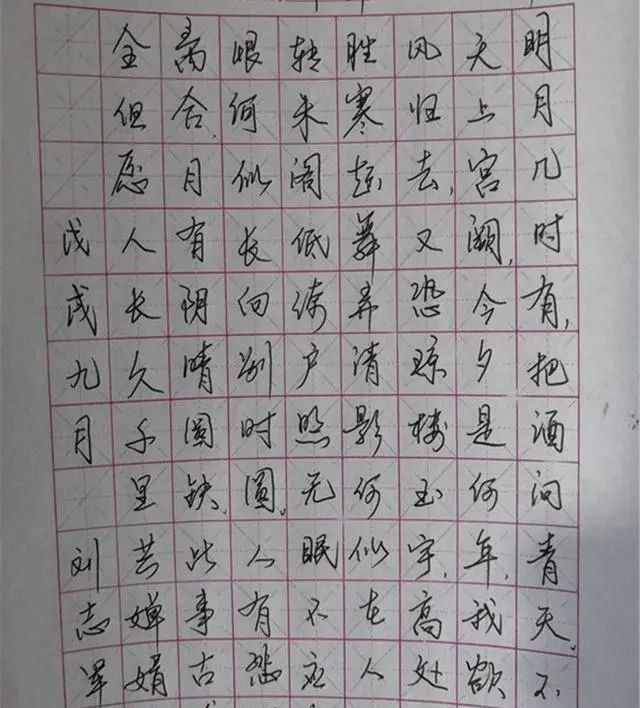 明月几时有，把酒问青天，不
天上宫阙，今夕是何年，我欲
风归去，又恐琼楼玉宇，高处
胜寒起舞弄清影何似在人
转朱阁低绮户照无眠不应
恨何似长向别时圆，人有悲
离合，月有阴晴圆缺，此事古
全但愿人长久千里共婵娟
戊戌九月 刘志军